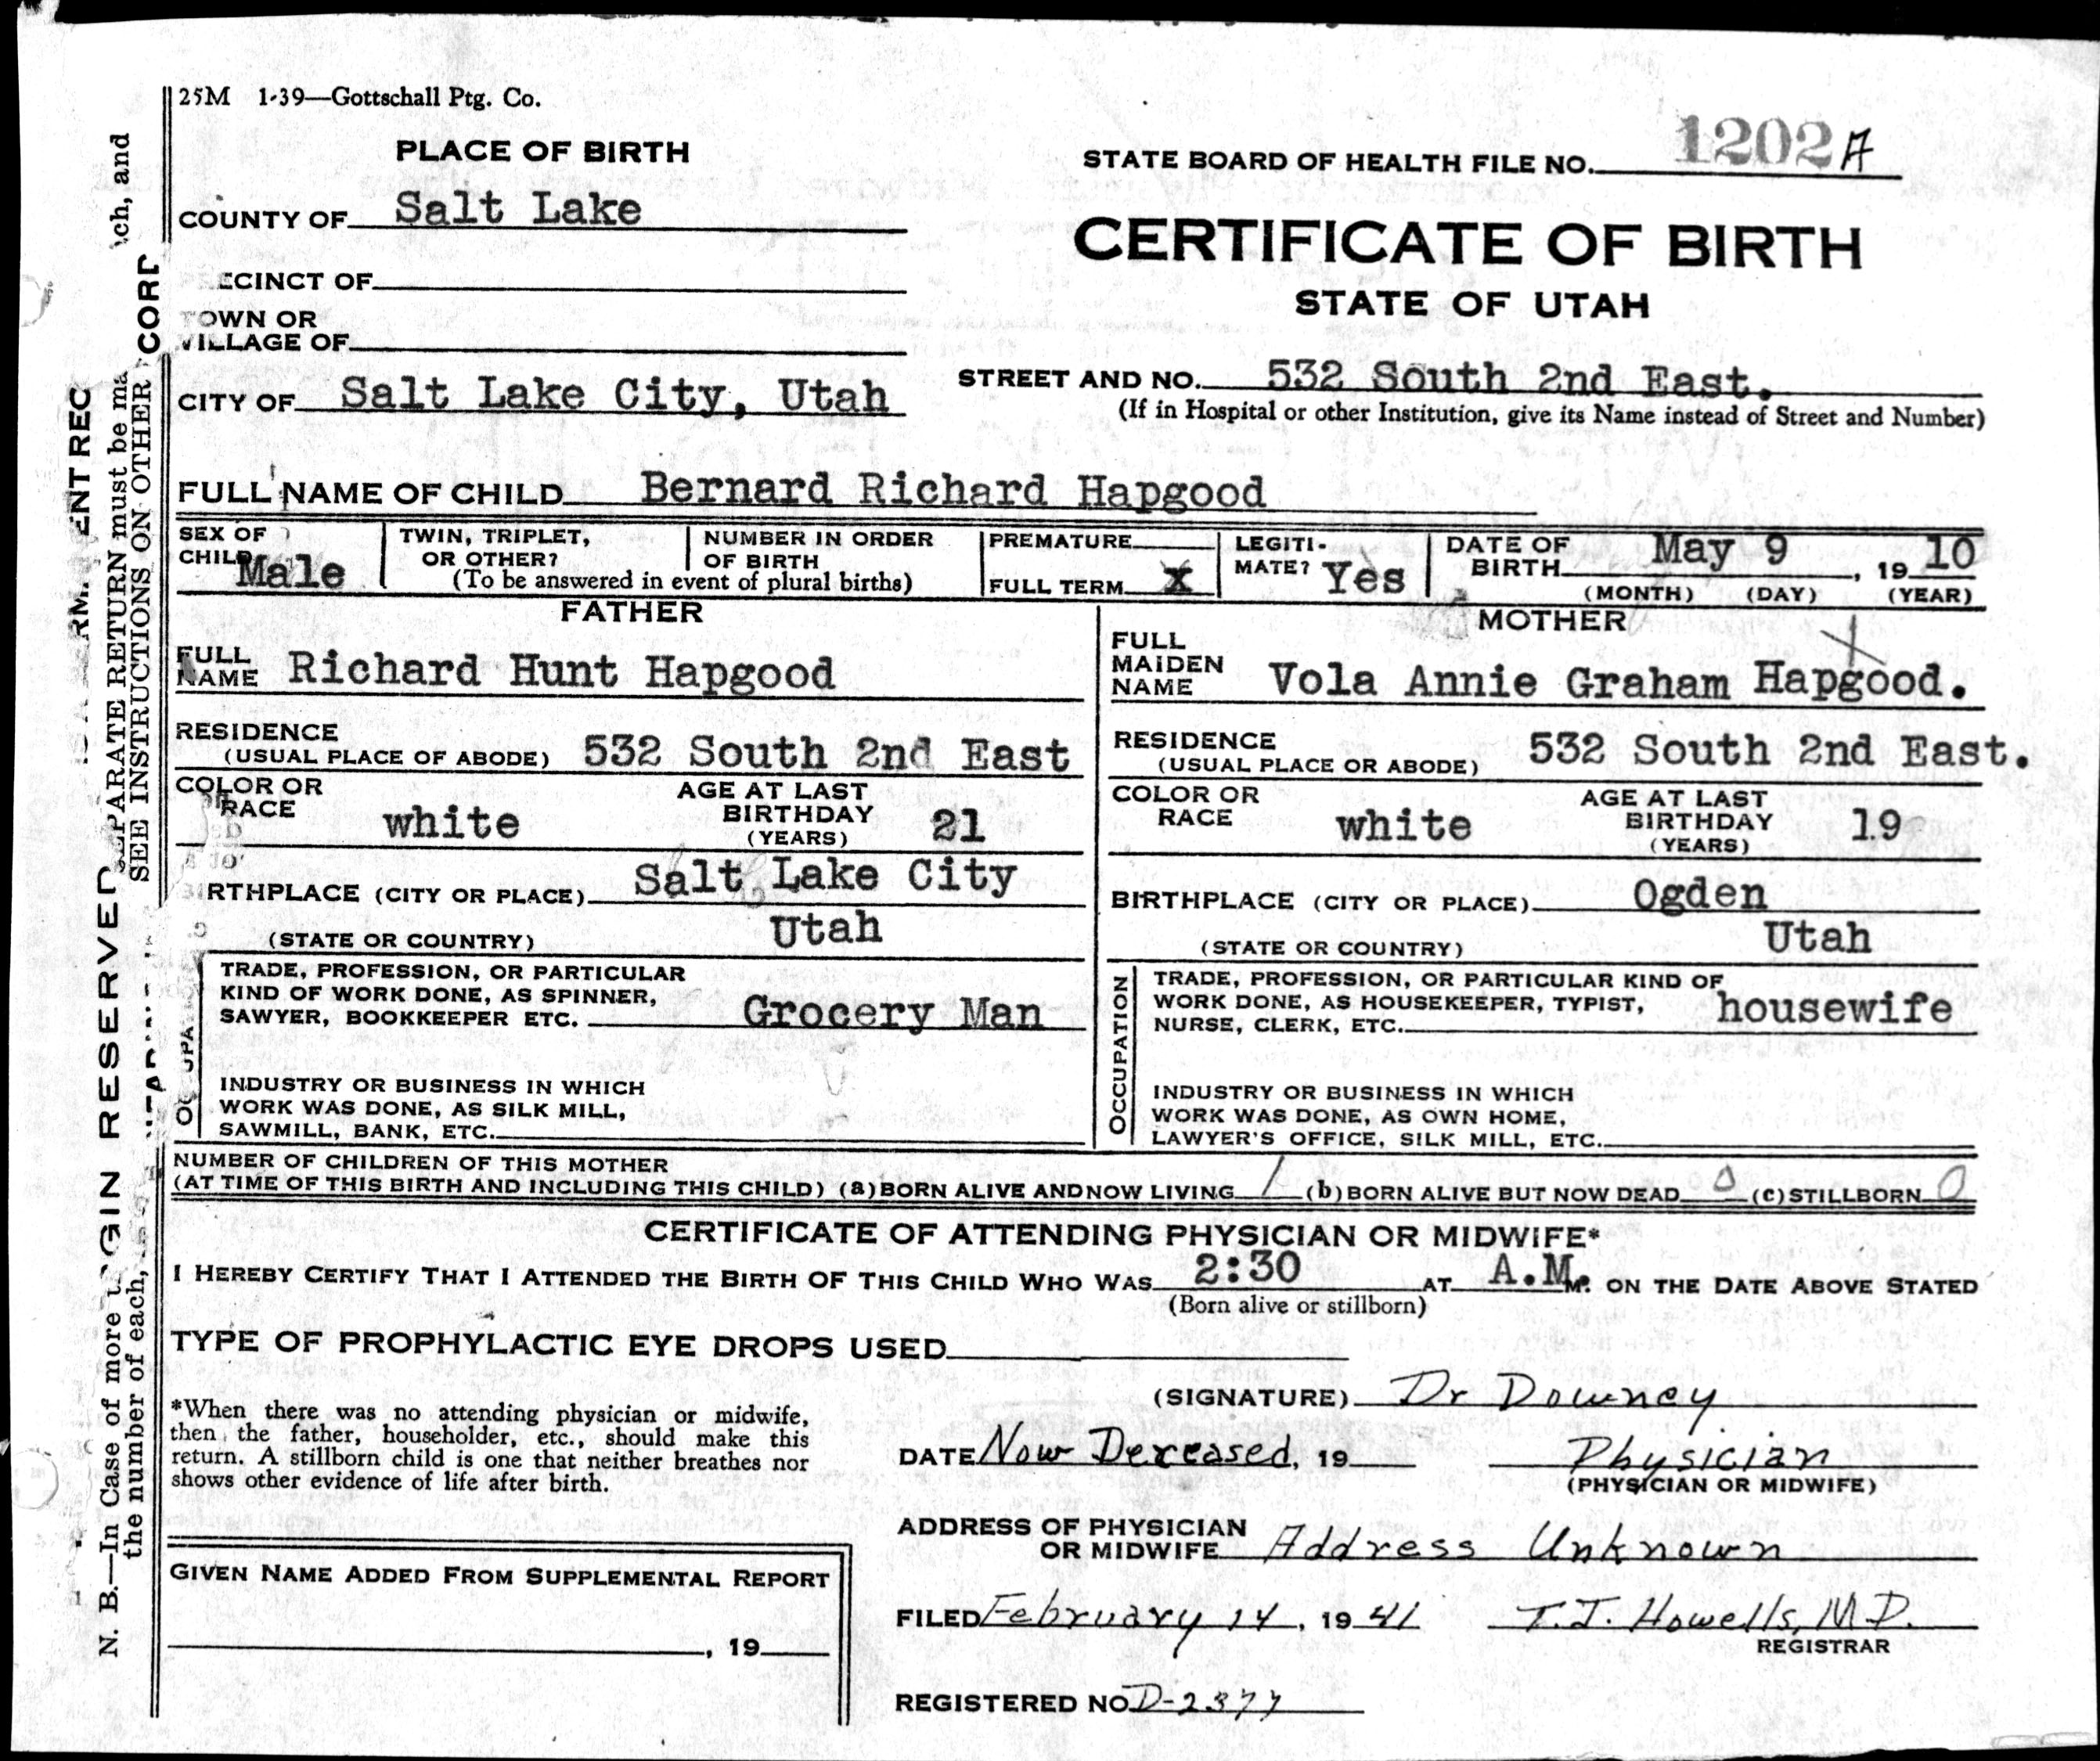 25M 1-39—Gottschall Ptg. Co.
PLACE OF BIRTH
STATE BOARD OF HEALTH FILE NO. 1202 A
COUNTY OF Salt Lake
CERTIFICATE OF BIRTH
STATE OF UTAH
ECINCT OF
TOWN OR
VILLAGE OF
CITY OF Salt Lake City, Utah
STREET AND NO. 532 South 2nd East.
(If in Hospital or other Institution, give its Name instead of Street and Number)
FULL NAME OF CHILD Bernard Richard Hapgood
SEX OF
CHILD Male
TWIN, TRIPLET,
OR OTHER?
NUMBER IN ORDER
OF BIRTH
(To be answered in event of plural births)
PREMATURE
FULL TERM X
LEGITI-
MATE? Yes
DATE OF
BIRTH May 9, 19 10
(MONTH) (DAY) (YEAR)
FATHER
FULL
NAME Richard Hunt Hapgood
RESIDENCE
(USUAL PLACE OF ABODE) 532 South 2nd East
COLOR OR
RACE white
AGE AT LAST
BIRTHDAY 21
(YEARS)
RTHPLACE (CITY OR PLACE) Salt Lake City
(STATE OR COUNTRY) Utah
TRADE, PROFESSION, OR PARTICULAR
KIND OF WORK DONE, AS SPINNER,
SAWYER, BOOKKEEPER ETC. Grocery Man
INDUSTRY OR BUSINESS IN WHICH
WORK WAS DONE, AS SILK MILL,
SAWMILL, BANK, ETC.
MOTHER
FULL
MAIDEN
NAME Vola Annie Graham Hapgood.
RESIDENCE
(USUAL PLACE OR ABODE) 532 South 2nd East.
COLOR OR
RACE white
AGE AT LAST
BIRTHDAY 19
(YEARS)
BIRTHPLACE (CITY OR PLACE) Ogden
(STATE OR COUNTRY) Utah
OCCUPATION
TRADE, PROFESSION, OR PARTICULAR KIND OF
WORK DONE, AS HOUSEKEEPER, TYPIST,
NURSE, CLERK, ETC. housewife
INDUSTRY OR BUSINESS IN WHICH
WORK WAS DONE, AS OWN HOME,
LAWYER'S OFFICE, SILK MILL, ETC.
NUMBER OF CHILDREN OF THIS MOTHER
(AT TIME OF THIS BIRTH AND INCLUDING THIS CHILD) (a) BORN ALIVE AND NOW LIVING 1 (b) BORN ALIVE BUT NOW DEAD 0 (c) STILLBORN 0
CERTIFICATE OF ATTENDING PHYSICIAN OR MIDWIFE*
I HEREBY CERTIFY THAT I ATTENDED THE BIRTH OF THIS CHILD WHO WAS 2:30 AT A.M. M. ON THE DATE ABOVE STATED
(Born alive or stillborn)
TYPE OF PROPHYLACTIC EYE DROPS USED
*When there was no attending physician or midwife,
then the father, householder, etc., should make this
return. A stillborn child is one that neither breathes nor
shows other evidence of life after birth.
(SIGNATURE) Dr Downey
DATE Now Deceased, 19 Physician
(PHYSICIAN OR MIDWIFE)
ADDRESS OF PHYSICIAN
OR MIDWIFE Address Unknown
GIVEN NAME ADDED FROM SUPPLEMENTAL REPORT
, 19
FILED February 14, 19 41 T.J. Howells, M.D.
REGISTRAR
REGISTERED NO D-2377
GIN RESERVED
ENT REC
SEPARATE RETURN must be ma ch, and
SEE INSTRUCTIONS ON OTHER
N. B.—In Case of more
the number of each,